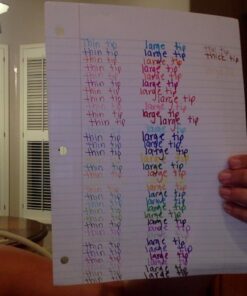 thin tip large tip thin tip
thin tip large tip thick tip
thin tip large tip
thin tip large tip
thin tip large tip
thin tip large tip
thin tip large tip
thin tip large tip
thin tip large tip
thin tip large tip
thin tip large tip
large tip
thin tip large tip
thin tip large tip
thin tip large tip
large tip
thin tip large tip
large tip
thin tip large tip
thin tip large tip
thin tip large tip
thin tip large tip
thin tip large tip
thin tip large tip
thin tip large tip
thin tip large tip
thin tip large tip
thin tip large tip
thin tip large tip
thin tip large tip